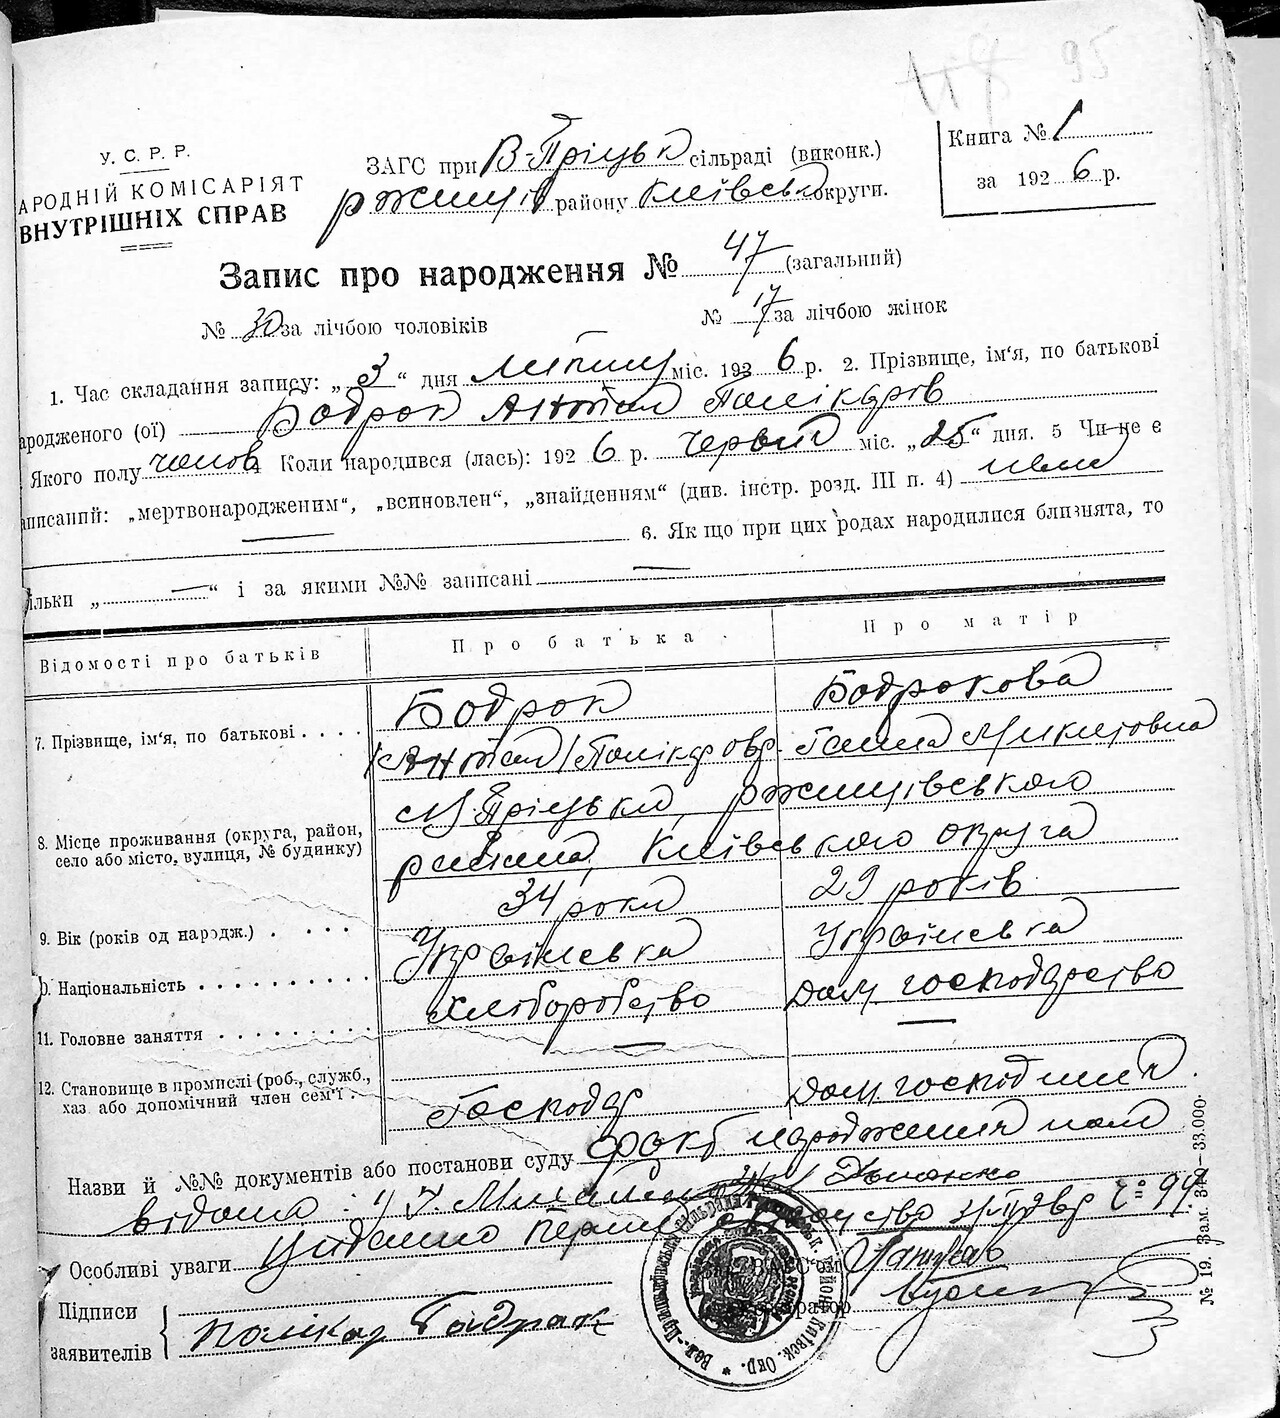 95
У. С. Р. Р.
АРОДНІЙ КОМІСАРІЯТ
ВНУТРІШНІХ СПРАВ
ЗАГС при В-Пріцьк сільраді (виконк.)
ржищів району Київськ округи.
Книга № 1
за 1926 р.
Запис про народження № 47 (загальний)
№ 30 за лічбою чоловіків № 17 за лічбою жінок
1. Час складання запису: „ 3 “ дня липня міс. 1926 р. 2. Прізвище, ім‘я, по батькові
ародженого (ої) Бодрок Антон Полікарів
Якого полу чолов. Коли народився (лась): 1926 р. червня міс. „25“ дня. 5 Чи не є
аписаний: „мертвонародженим“, „всиновлен“, „знайденням“ (див. інстр. розд. III п. 4) нема
6. Як що при цих родах народилися близнята, то
ільки „ — “ і за якими №№ записані —
Відомості про батьків Про батька Про матір
7. Прізвище, ім‘я, по батькові . . . . Бодрок Бодрокова
Антон Полікаров. Ганна Микитовна
8. Місце проживання (округа, район,
село або місто, вулиця, № будинку)
Пріцьки, ржищівського
района, Київського округа
9. Вік (років од народж.) . . . . 34 роки 29 років
0. Національність . . . . . . . . . . Українська Українська
11. Головне заняття . . . . . . . . . хліборобство Дом. господарство
12. Становище в промислі (роб., служб.,
хаз або допомічний член сем‘ї .
Господар Дом. господиня.
Назви й №№ документів або постанови суду факт народження нам
відомо:
Особливі уваги Видано перше
Підписи
заявителів
Полікар Бодрак
ЗАГС‘ом
№ 19. Зам. 349—33.000.